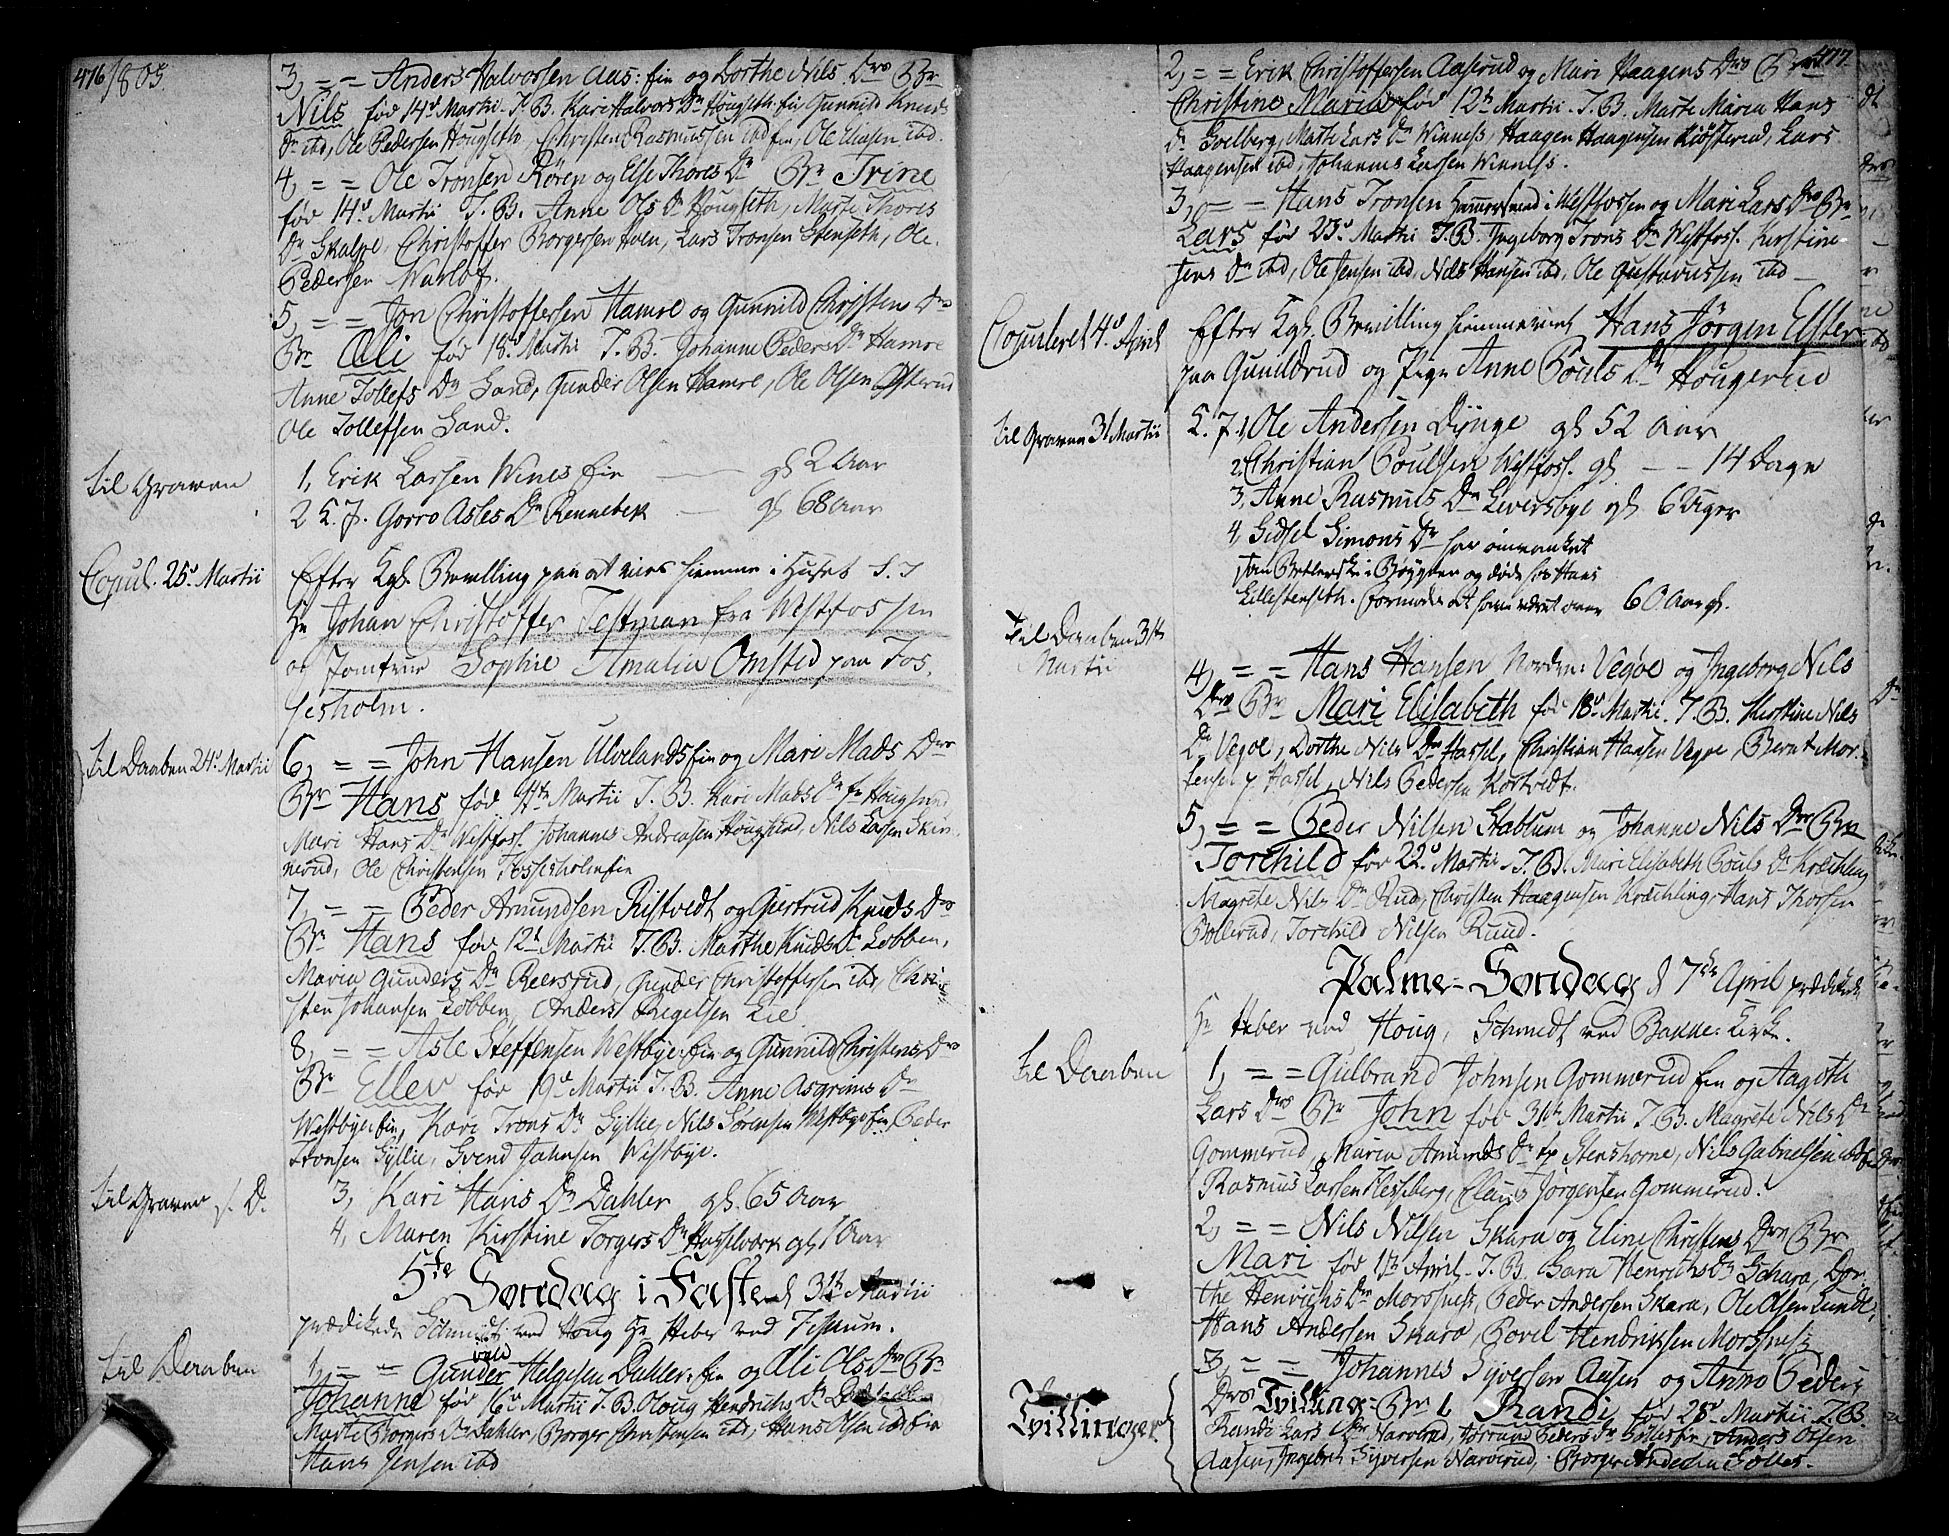 476 1805.
3, = = Anders Halvorsen Aas: fin og Dorthe Nils Drs Br
Nils før 14d Martii. T. B. Kari Halvors Dr Hougseth. fin Gunnild Knuds
Dr ibd, Ole Pedersen Hougseth, Christen Rasmussen ibd fin, Ole Eliasen ibd.
4, = = Ole Tronsen Røren og Else Thores Dr Br Trine
før 14d Martii T. B. Anne Ols Dr Hougseth, Marte Thores
Dr Skalpe, Christoffer Borgersen Hoen, Lars Tronsen Stenseth, Ole
Pedersen Warlof.
5, = = Jon Christoffersen Hamre og Gunnild Christens Drs
Br Oli før 18d Martii T. B. Johanne Peders Dr Hamre
Anne Tollefs Dr Sand, Gunder Olsen Hamre, Ole Olsen
Ole Tollefsen Sand.
til Graven
1, Erik Larsen Wines fin — gl 2 Aar
2 L. J. Gorro Asles Dr Rennebek — gl 68 Aar
Copul. 25d Martii
Efter Kgl. Bevilling paa at vies hiemme i Huset
Hr Johan Christoffer Testman fra Westfossen
og Jomfrue Sophie Amalia Omsted paa Fos,
sesholm.
til Daaben 24d Martii
6, = = John Hansen Ulvelandsfin og Mari Mads Drs
Br Hans før Martii T. B. Kari Mads Dr fra Hougsund
Mari Hans Dr Westfoss. Johannes Andreasen Hougsund, Nils Larsen Skin,
nerud, Ole Christensen Fossesholmfin
7, = = Peder Amundsen Ristvedt og Giertrud Knuds Drs
Br Hans før 12t Martii T. B. Marthe Knuds Dr Lobben,
Maria Gunders Dr Beersrud, Gunder Christoffersen ibd, Chri
sten Johansen Lobben, Anders Regelsen Lie
8, = = Asle Steffensen Westbye: fin og Gunnild Christens Drs
Br Ellev før 19d Martii T. B. Anne Asgrims Dr
Westbyefin, Kari Trons Dr Gyllie, Nils Sørensen Westbyefin, Peder
Tronsen Gyllie, Svend Jahnsen Westbye.
til Graven s. D.
3, Kari Hans Dr Dahler gl. 65 Aar
4, Maren Kirstine Torgers Dr Hasselværk gl 1 Aar
5te Søndag i Faste d 31t Martii
prædikede Schmidt ved Houg Hr Heber ved Fiskum.
til Daaben
1, = = Gunder Helgesen Dahler: fin og Oli Ols Drs Br
vald
Johanne før 16d Martii T. B. Oloug Hendrichs Dr
Marte Borgers Dr Dahler, Borger Christensen ibd, Hans Olsen ibd fin
Hans Jensen ibd
477
2, = = Erik Christoffersen Aaserud og Mari Haagens Drs Br
Christine Maria før 12t Martii. T. B. Marte Maria Hans
Dr Soelberg, Marte Lars Dr Winness, Haagen Haagensen Kiøsterud, Lars
Haagensen ibd, Johannes Larsen Winness.
3, = = Hans Tronsen Hammersmed i Westfossen og Mari Lars Drs Br
Lars før 23d Martii T. B. Ingeborg Trons Dr Westfoss. Kirstine
Jens Dr ibd, Ole Jensen ibd, Nils Hansen ibd, Ole Gustavussen ibd —
Copuleret 4d April
Efter Kgl. Bevilling hiemmeviet Hans Jörgen Elster
paa Gunildrud og Pige Anne Pouls Dr Hougerud
til Graven 31 Martii
L. J. 1, Ole Andersen Dynge gl 52 Aar
2, Christian Poulsen Westfoss. gl — 14 Dage
3, Anne Rasmus Dr Leversbye gl 6 Uger
4, Sidsel Simons Dr har omvanket
som Betlerske i Bøygden og døde hos Hans
Lillestenseth. formodes at have været over 60 Aar gl.
til Daaben 31t
Martii
4, = = Hans Hansen Norden: Vegøe og Ingeborg Nils
Drs Br Mari Elisabeth før 18d Martii. T. B. Kirstine Nils
Dr Vegoe, Dorthe Nils Dr Hassel, Christian Hansen Vegoe, Bernt Mor,
tensen p Hassel, Nils Pedersen Kortvedt.
5, = = Peder Nilsen Stablum og Johanne Nils Drs Br
Torchild før 22d Martii. T. B. Mari Elisabeth Pouls Dr Kræchling
Magrete Nils Dr Rud, Christen Haagensen Kræchling, Hans Thorsen
Bollerud, Torchild Nilsen Ruud.
Palme-Søndag d 7de April prædikede
Hr Heber ved Houg, Schmidt ved Bakke: Kirke.
til Daaben
1, = = Gulbrand Johnsen Gommerud fin og Aagothe
Lars Drs Br John før 31t Martii T. B. Magrete Nils Dr
Gommerud, Maria Amunds Dr fra Stenshorne, Nils Gabrielsen
Rasmus Larsen Hesseberg, Claus Jørgensen Gommerud.
2, = = Nils Nilsen Skara og Eline Christens Drs Br
Mari før 1t April. T. B. Sara Henrichs Dr Schara, Dor
the Henrichs Dr Morsness, Peder Andersen Skara, Ole Olsen Lunde,
Hans Andersen Skara, Povel Hendriksen Morsness
3, = = Johannes Syversen Aasen og Anne Peders
Tvillinger
Drs Tvilling-Br 1 Randi før 28d Martii T. B.
Randi Lars Dr Narverud, Jorrand Peders Dr Sollesfin, Anders Olsen
Aasen, Ingebret Syversen Narverud, Borger Andersen Solles.